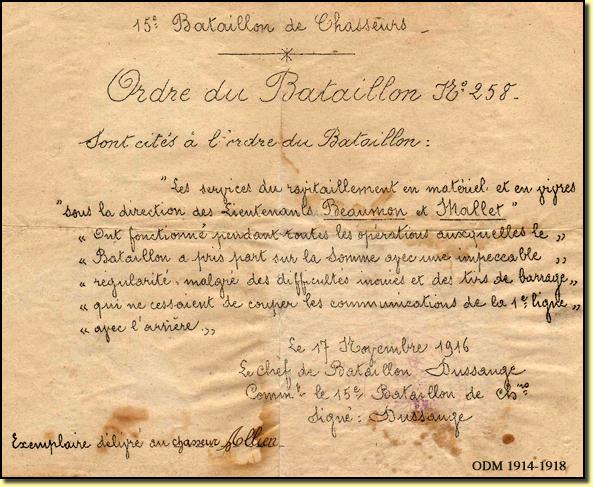 15e Bataillon de Chasseurs -
Ordre du Bataillon No 258.
Sont cités à l'ordre du Bataillon:
"Les services du ravitaillement en matériel et en vivres
"sous la direction des Lieutenants Beaumon et Mallet"
"Ont fonctionné pendant toutes les opérations auxquelles le "
"Bataillon a pris part sur la Somme avec une impeccable "
"régularité malgré des difficultés inouies et des tirs de barrage"
"qui ne cessaient de couper les communications de la 1e ligne"
"avec l'arrière."
Le 17 Novembre 1916
Le Chef de Bataillon Dussauge
Commt le 15e Bataillon de Chrs
Signé: Dussauge
Exemplaire délivré au chasseur
ODM 1914-1918